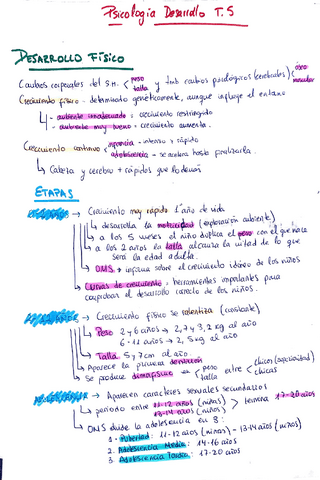 Psicología Desarrollo T.5
DESARROLLO FÍSICO
Cambios corporales del S.H. < peso talla y tmb cambios psicológicos (cerebrales)
Crecimiento físico - determinado genéticamente, aunque influye el entorno
- ambiente inadecuado: crecimiento restringido
- ambiente muy bueno - crecimiento aumenta.
Crecimiento continuo < infancia - intenso y rápido
adolescencia - se acelera hasta finalizarla.
Cabeza y cerebro + rápidos que lo demás
ETAPAS
→ Crecimiento muy rápido 1º año de vida
desarrolla la motricidad (exploración ambiente)
a los 5 meses el niño duplica el peso con el que nace
a los 2 años en talla alcanza la mitad de lo que
será la edad adulta.
OMS → informa sobre el crecimiento idóneo de los niños
Curvas de crecimiento: herramientas importantes para
comprobar el desarrollo correcto de los niños.
→ Crecimiento físico se ralentiza (constante)
Peso 2 y 6 años → 2,7 y 3,2 kg al año
6-12 años → 2,5 kg al año
Talla 5 y 7 cm al año.
Aparece la primera dentición
Se produce dimorfismo < peso talla entre < chicos
chicas
→ Aparecen caracteres sexuales secundarios
periodo entre 11-12 años (niñas) > termina 17-20 años
13-14 años (niños)
OMS divide la adolescencia en 3:
1. Pubertad: 11-12 años (niñas) - 13-14 años (niños)
2. Adolescencia Media: 14-16 años
3. Adolescencia Tardía: 17-20 años